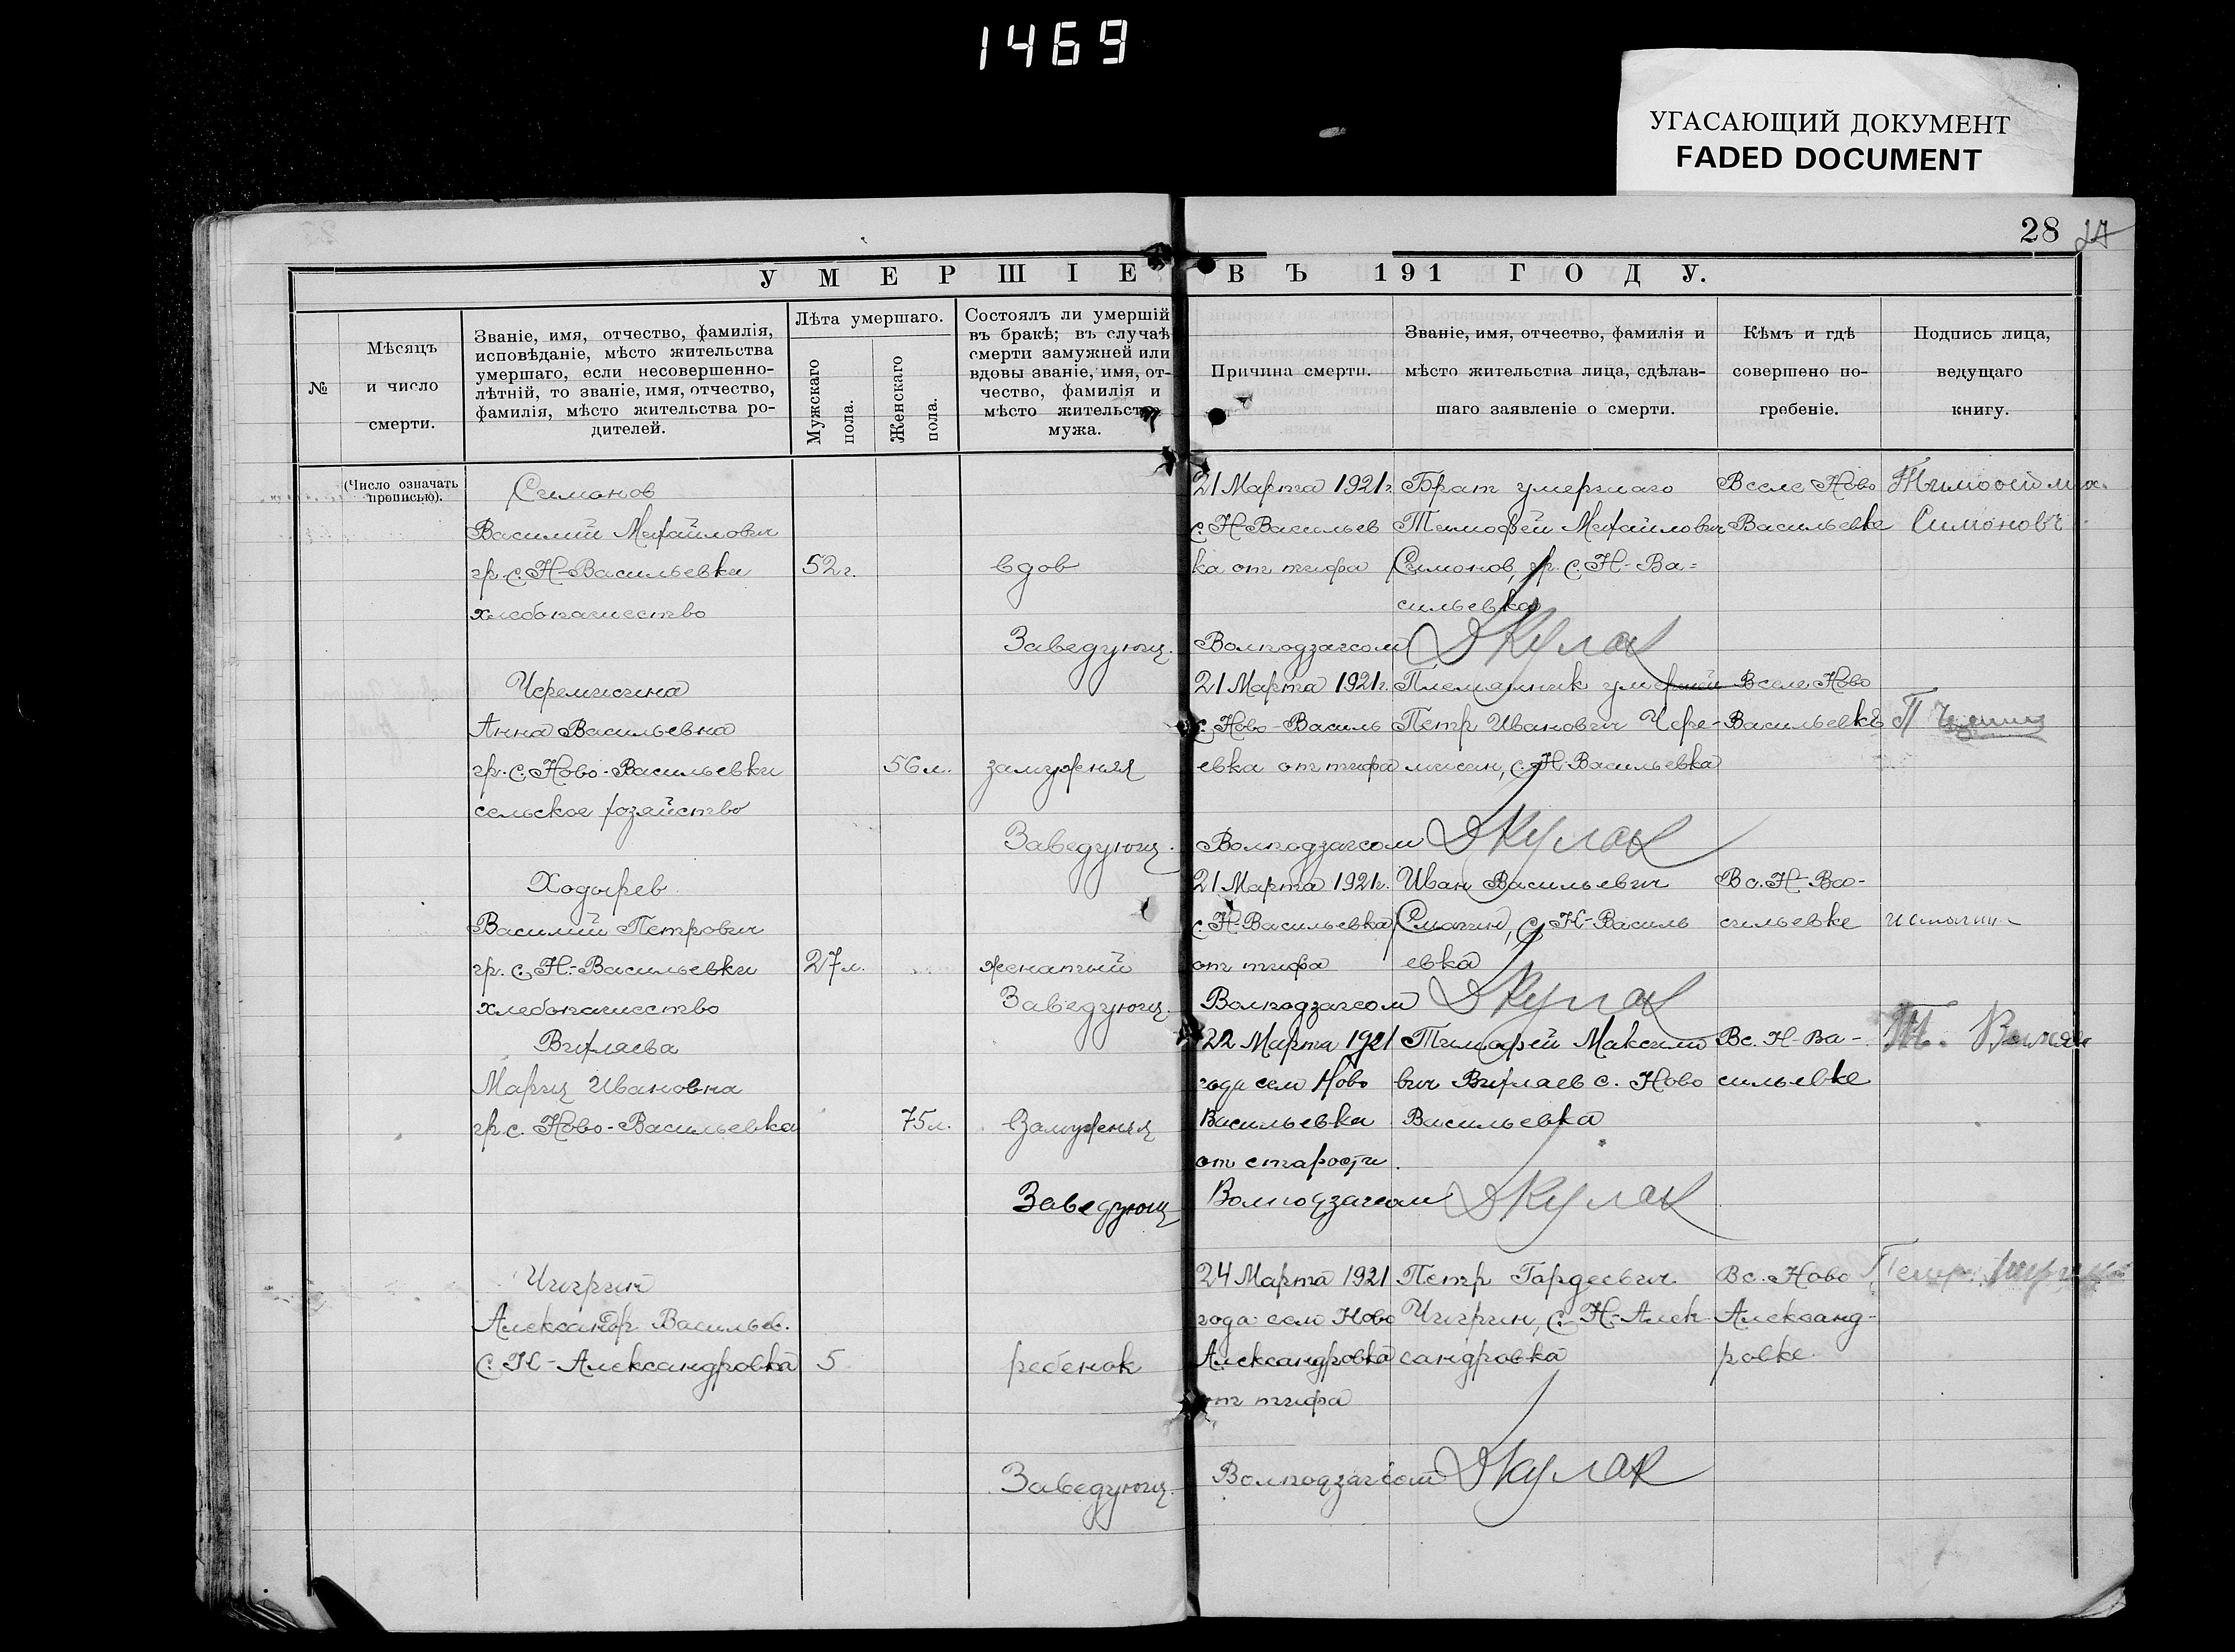 1469
УГАСАЮЩИЙ ДОКУМЕНТ
FADED DOCUMENT
28 27
УМЕРШІЕ ВЪ 191 ГОДУ.
№
Мѣсяцъ
и число
смерти.
Званіе, имя, отчество, фамилія,
исповѣданіе, мѣсто жительства
умершаго, если несовершенно-
лѣтній, то званіе, имя, отчество,
фамилія, мѣсто жительства ро-
дителей.
Лѣта умершаго.
Мужскаго
пола.
Женскаго
пола.
Состоялъ ли умершій
въ бракѣ; въ случаѣ
смерти замужней или
вдовы званіе, имя, от-
чество, фамилія и
мѣсто жительства
мужа.
Причина смерти.
Званіе, имя, отчество, фамилія и
мѣсто жительства лица, сдѣлав-
шаго заявленіе о смерти.
Кѣмъ и гдѣ
совершено по-
гребеніе.
Подпись лица,
ведущаго
книгу.
(Число означать
прописью).
Симонов
Василий Михайлович
гр. с. Н-Васильевки
хлебопашество
52 г.
вдов
21 Марта 1921 г.
с. Н-Васильев
ка от тифа
Брат умершаго
Тимофей Михайлович
Симонов, гр. с. Н-Ва=
сильевка
В селе Ново
Васильевке
Симоновъ
Заведующ. Волподзагсом Кулак
Черемисина
Анна Васильевна
гр. с. Ново-Васильевки
сельское хозяйство
56 л.
замужняя
21 Марта 1921 г.
с. Ново-Василь
евка от тифа
Племянник умершей
Петр Иванович Чере-
мисин, с. Н-Васильевка
В селе Ново
Васильевкѣ
П
Заведующ. Волподзагсом Кулак
Ходырев
Василий Петрович
гр. с. Н.-Васильевки
хлебопашество
27 л.
женатый
21 Марта 1921 г.
с. Н-Васильевка
от тифа
Иван Васильевич
Смагин, с. Н-Василь
евка
В с. Н-Ва-
сильевке
Заведующ. Волподзагсом Кулак
Вихляева
Мария Ивановна
гр. с. Ново-Васильевка
75 л.
Замужняя
22 Марта 1921
года село Ново
Васильевка
от старости.
Тимофей Максимо
вич Вихляев с. Ново
Васильевка
В с. Н-Ва-
сильевке
Т.
Заведующ Волподзагсом Кулак
Чигрин
Александр Васильев.
с. Н-Александровка
5
ребенок
24 Марта 1921
года село Ново
Александровка
от тифа
Петр Гордеевич
Чигрин, с. Н-Алек
сандровка
В с. Ново
Александ-
ровке.
Петр
Заведующ. Волподзагсом Кулак